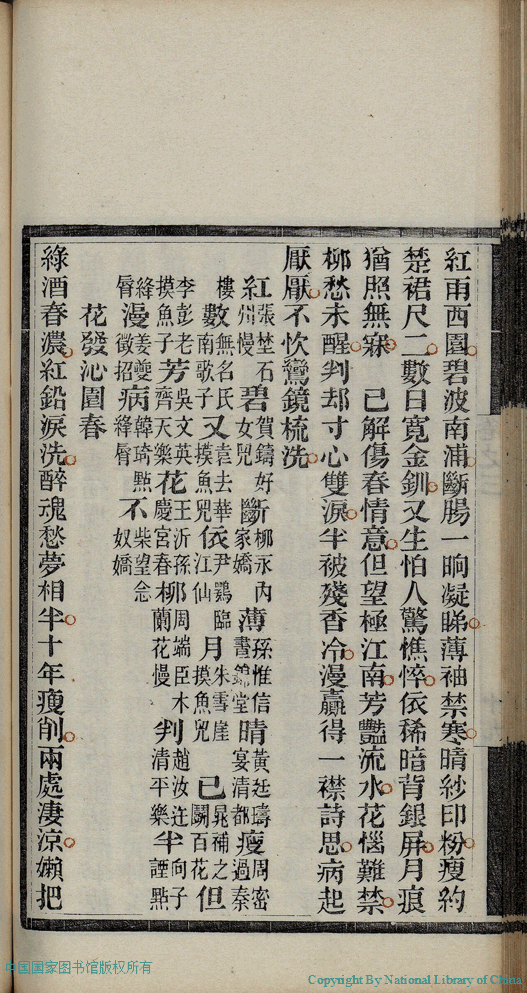 紅雨西園碧波南浦斷腸一晌凝睇薄袖禁寒晴紗印粉瘦約
楚裙尺二數日寬金釧又生怕人驚憔悴依稀暗背銀屏月痕
猶照無寐　已解傷春情意但望極江南芳豔流水花惱難禁
柳愁未醒判却寸心雙淚半被殘香冷漫贏得一襟詩思病起
厭厭不忺鸞鏡梳洗
紅張埜石州慢碧賀鑄好女兒斷柳永內家嬌薄孫惟信晝錦堂晴黃廷璹宴清都瘦周密過秦
樓數無名氏南歌子又袁去華摸魚兒依尹鶚臨江仙月朱雪崖摸魚兒已晁補之鬭百花但
李彭老摸魚子芳吳文英齊天樂花王沂孫慶宮春柳周端臣木蘭花慢判趙汝迕清平樂半向子諲點
絳脣漫姜夔徵招病韓琦點絳脣不柴望念奴嬌
花發沁園春
綠酒春濃紅鉛淚洗醉魂愁夢相半十年瘦削兩處淒涼嬾把
中国国家图书馆版权所有
Copyright By National Library of China